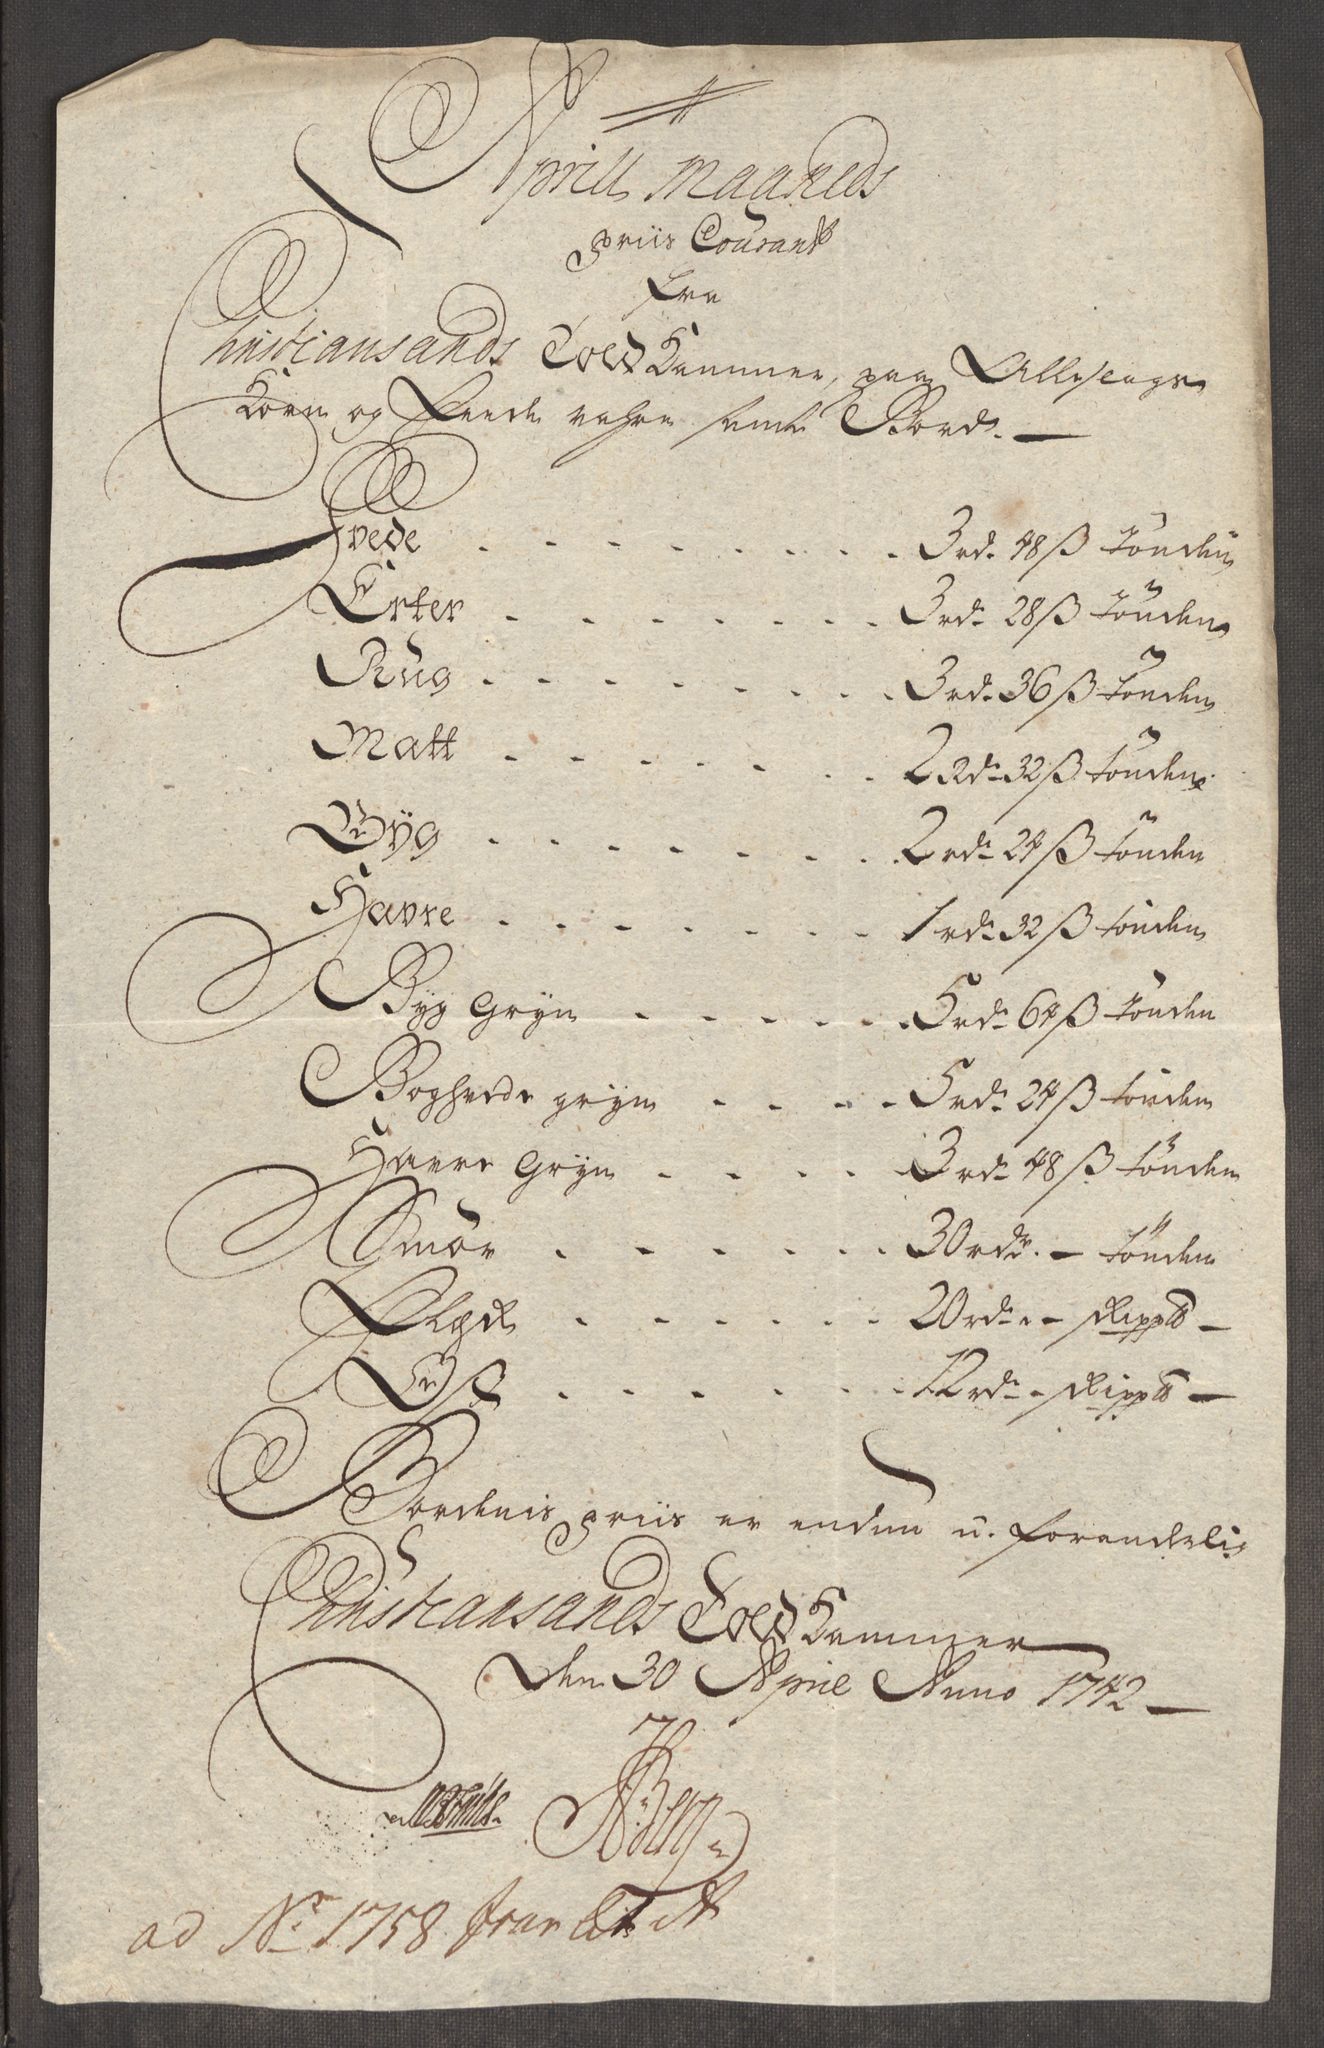 Aprill Maaneds
priis Courant
fra
Christiansands Told Kammer, paa Alleslags
Korn og Feede vahre samt Bord.
Hvede - - - - - - - - 3 rd. 48 ß tönden
Erter - - - - - - - - 3 rd. 28 ß tönden
Rug - - - - - - - - 3 rd. 36 ß tönden
Malt - - - - - - - 2 Rd. 32 ß tönden
Byg - - - - - - - - 2 rd. 24 ß tönden
Havre - - - - - - - 1 rd. 32 ß tönden
Byg Gryn - - - - - - 5 rd. 64 ß tönden
Boghvede gryn - - - - 5 rd. 24 ß tönden
Havre Gryn - - - - 3 rd. 48 ß tönden
Smör - - - - - - - 30 rdr. - tönden
Flesk - - - - - - 20 rd. - Skippd -
Ost - - - - - - - 12 rd. - Skippd -
Bordenis priis er endnu u-foranderlig
Christiansands Told Kammer
den 30 April Anno 1742
ad No. 1758